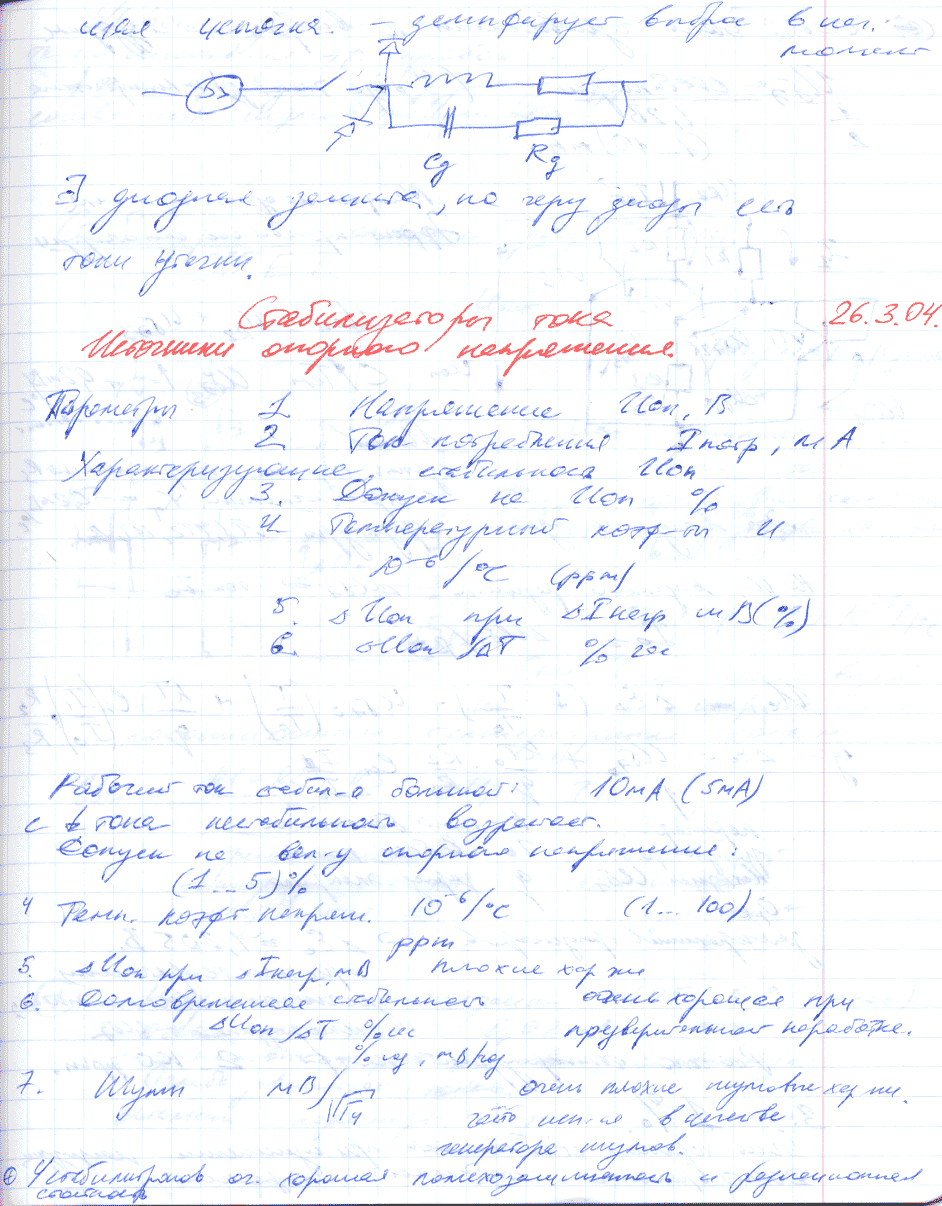 цепочка. – демпфирует выброс в нач.
момент
Cд Rд
∃ диодная защита, но через диоды есть
токи утечки.
Стабилизаторы тока 26.3.04.
Источники опорного напряжения.
Параметры 1 Напряжение Uоп, В
2 Ток потребления Iпотр, мА
Характеризующие стабильность Uоп
3. Допуск на Uоп %
4 Температурный коэф-ты U
10⁻⁶/°C (ppm)
5. ΔUоп при ΔIнагр мВ(%)
6. ΔUоп/ΔT % час
Рабочий ток стабил-а большой: 10мА (5мА)
с ↓ тока нестабильность возрастает.
Допуск на вел-у опорного напряжения:
(1...5)%
4 Темп. коэфт напряж. 10⁻⁶/°C (1...100)
ppm
5. ΔUоп при ΔIнагр, мВ плохие хар-ки
6. Долговременная стабильность очень хорошая при
ΔUоп/ΔT %час предварительной наработке.
%год, мВ/год
7. Шумы мВ/√Гц очень плохие шумовые хар-ки.
часто исп-ся в качестве
генератора шумов.
⊕ У стабилитронов оч. хорошая помехозащищенность и радиационная
стойкость